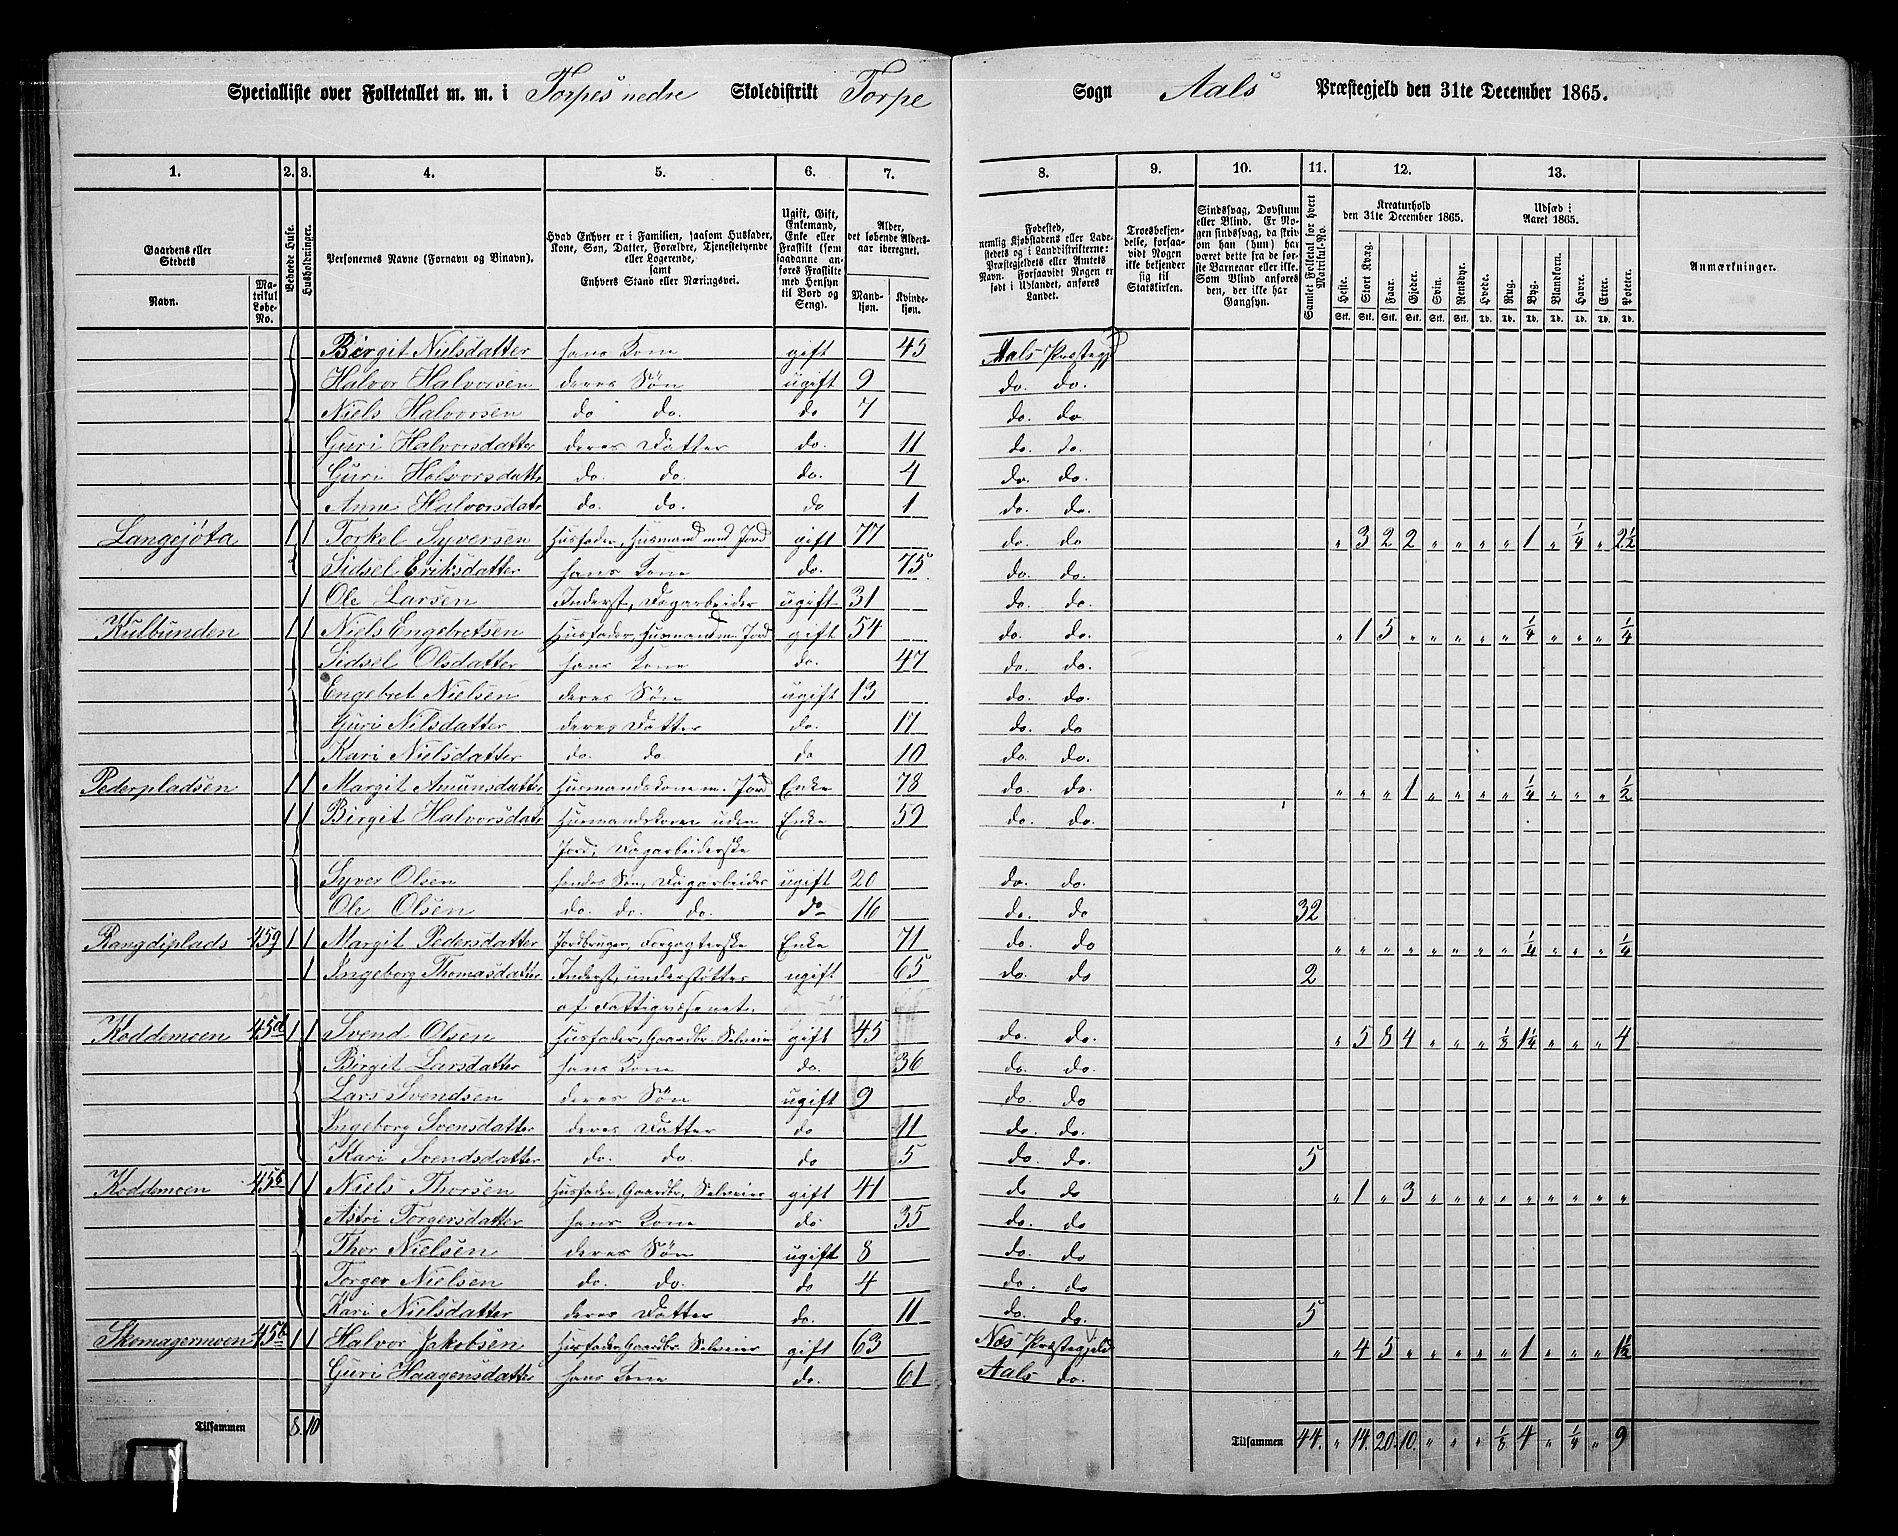 Specialliste over Folketallet m. m. i Torpes nedre Skoledistrikt Torpe Sogn Aals Præstegjeld den 31te December 1865.
1. 2. 3. 4. 5. 6. 7. 8. 9. 10. 11. 12. 13.
Gaardens eller Stedets
Navn.
Matrikul Løbe-No.
Beboede Huse.
Husholdninger.
Personernes Navne (Fornavn og Binavn).
Hvad Enhver er i Familien, saasom Husfader, Kone, Søn, Datter, Forældre, Tjenestetyende eller Logerende, samt Enhvers Stand eller Næringsvei.
Ugift, Gift, Enkemand, Enke eller Fraskilt (som saadanne anføres Fraskilte med Hensyn til Bord og Seng).
Alder, det løbende Aldersaar iberegnet.
Mandkjøn. Kvindekjøn.
Fødested, nemlig Kjøbstadens eller Ladestedets og i Landdistrikterne: Præstegjeldets eller Amtets Navn. Forsaavidt Nogen er født i Udlandet, anføres Landet.
Troesbekjendelse, forsaavidt Nogen ikke bekjender sig til Statskirken.
Sindssvag, Døvstum eller Blind. Er Nogen sindssvag, da skrives om han (hun) har været dette fra de første Barneaar eller ikke. Som Blind anføres den, der ikke har Gangsyn.
Samlet Folketal for hvert Matrikul-No.
Kreaturhold den 31te December 1865.
Heste. Stort Kvæg. Faar. Gjeder. Svin. Rensdyr.
Udsæd i Aaret 1865.
Hvede. Rug. Byg. Blandkorn. Havre. Erter. Poteter.
Stk. Stk. Stk. Stk. Stk. Stk. Td. Td. Td. Td. Td. Td. Td.
Anmærkninger.
Birgit Nielsdatter hans Kone gift 45 Aals Præstegjd
Halvor Halvorsen deres Søn ugift 9 do. do.
Niels Halvorsen do do. do 7 do. do
Guri Halvorsdatter deres Datter do. 11 do. do.
Guri Halvorsdatter do. do. do. 4 do. do.
Anne Halvorsdatr do. do. do 1 do. do.
Langejøta 1 1 Torkel Syversen Husfader, Husmand med Jord gift 77 do. do " 3 2 2 " " " " 1 " 1/4 " 2 1/2
Sidsel Eriksdatter hans Kone do. 75 do. do.
1 Ole Larsen Inderst, Dagarbeider ugift 31 do. do.
Kulbunden 1 1 Niels Engebretsen Husfader, Husmand m. Jord gift 54 do. do " 1 5 " " " " " 1/4 " " " 1/4
Sidsel Olsdatter hans Kone do. 47 do. do.
Engebret Nielsen deres Søn ugift 13 do. do.
Guri Nilsdatter deres Datter do. 17 do. do.
Kari Nielsdatter do. do. do 10 do. do.
Pederpladsen 1 1 Margit Amunsdatter Husmandskone m. Jord Enke 78 do. do. " " " 1 " " " " 1/4 " " " 1/2
1 1 Birgit Halvorsdatr Husmandskone uden Enke 59 do. do.
Jord, Dagarbeiderske
Syver Olsen hendes Søn, Dagarbeider ugift 20 do. do.
Ole Olsen do. do. do. do 16 do. do 32
Rangdiplads 45g 1 1 Margit Pedersdatter Jordbruger, Forpagterske Enke 71 do. do " " " " " " " " 1/4 " " " 1/4
1 Ingeborg Thomasdatter Inderst, understøttes ugift 65 do. do 2
af Fattigvæsenet.
Koddemoen 45d 1 1 Svend Olsen Husfader, Gaardbr. Selveier gift 45 do. do. " 5 8 4 " " " 1/8 1 1/4 " " " 4
Birgit Larsdatter hans Kone do. 36 do. do.
Lars Svendsen deres Søn ugift 9 do. do.
Ingeborg Svensdatter deres Datter do 11 do. do.
Kari Svendsdatter do. do. do 5 do. do. 5
Koddemoen 1 1 Niels Thorsen Husfader, Gaardbr. Selveier gift 41 do do " 1 " 3 " " " " " " " " "
Astri Torgersdatter hans Kone do. 35 do. do
Thor Nielsen deres Søn ugift 8 do. do
Torger Nielsen do. do. do 4 do. do
Kari Nielsdatter deres Datter do. 11 do. do. 5
Skomagermoen 45b 1 1 Halvor Jakobsen Husfader, Gaardbr. Selveier gift 63 Næs Præstegjeld " 4 5 " " " " " 1 " " " 1 1/2
Guri Haagensdatter hans Kone do. 61 Aals do.
Tilsammen 8. 10 Tilsammen 44. " 14. 20. 10. " " " 1/8 4 " 1/4 " 9